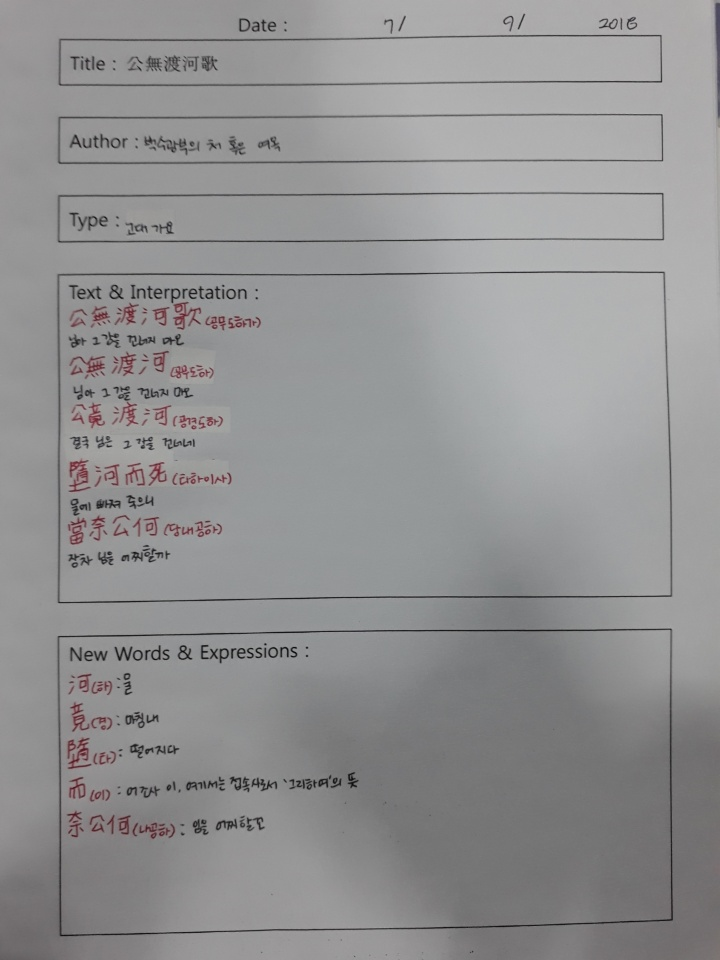 Date : 7/ 9/ 2018
Title : 公無渡河歌
Author : 백수광부의 처 혹은 여옥
Type : 고대 가요
Text & Interpretation :
公無渡河歌 (공무도하가)
님아 그 강을 건너지 마오
公無渡河 (공무도하)
님아 그 강을 건너지 마오
公竟渡河 (공경도하)
결국 님은 그 강을 건너네
墮河而死 (타하이사)
물에 빠져 죽으니
當奈公何 (당내공하)
장차 님을 어찌할까
New Words & Expressions :
河(하) : 물
竟(경) : 마침내
墮(타) : 떨어지다
而(이) : 어조사 이, 여기서는 접속사로서 '그리하여'의 뜻
奈公何(나공하) : 임을 어찌할꼬